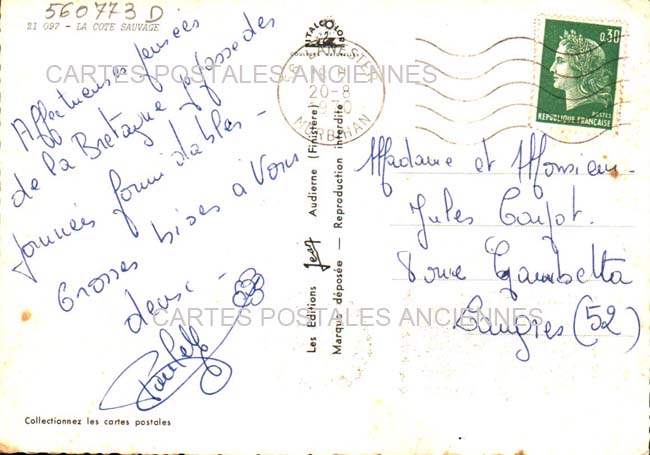 560773 D
21 097 - LA COTE SAUVAGE
Affectueuses pensées
de la Bretagne je passe des
journées formidables -
Grosses bises a Vous
deux -
ITALCOLOR
20-8
MORBIHAN
Les Editions Jean Audierne (Finistère)
Marque déposée — Reproduction interdite
0,30
POSTES
REPUBLIQUE FRANÇAISE
Madame et Monsieur
Jules
Gambetta
Langres (52)
Collectionnez les cartes postales
CARTES POSTALES ANCIENNES
CARTES POSTALES ANCIENNES